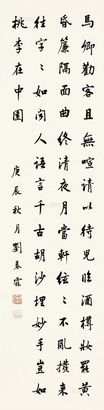 馬卿勸客且無喧請以侍兒臨酒樽妝罷黃
昏簾隔面曲終清夜月當軒絃絃不亂撥來
往字字如聞人語言千古胡沙埋妙手豈如
桃李在中園
庚辰秋月劉春霖